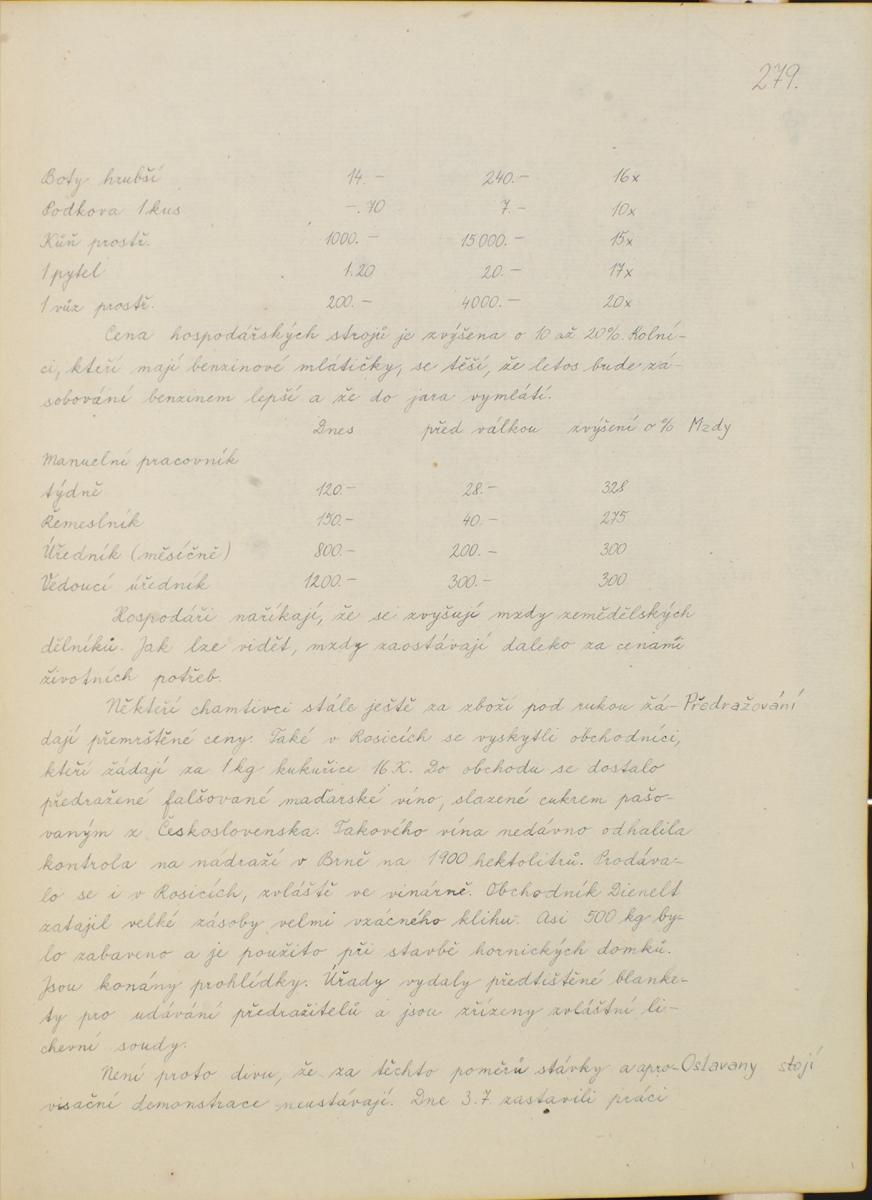 279.
Boty hrubší 14.- 240.- 16x
Podkova 1 kus -.70 7.- 10x
Kůň prostř. 1000.- 15000.- 15x
1 pytel 1.20 20.- 17x
1 vůz prostř. 200.- 4000.- 20x
Cena hospodářských strojů je zvýšena o 10 až 20%. Rolní-
ci, kteří mají benzinové mlátičky, se těší, že letos bude zá-
sobování benzinem lepší a že do jara vymlátí.
Dnes před válkou zvýšení o % Mzdy
Manuelní pracovník
týdně 120.- 28.- 328
Řemeslník 150.- 40.- 275
Úředník (měsíčně) 800.- 200.- 300
Vedoucí úředník 1200.- 300.- 300
Hospodáři naříkají, že se zvyšují mzdy zemědělských
dělníků. Jak lze vidět, mzdy zaostávají daleko za cenami
životních potřeb.
Někteří chamtivci stále ještě za zboží pod rukou žá- Předražování
dají přemrštěné ceny. Také v Rosicích se vyskytli obchodníci,
kteří žádají za 1 kg kukuřice 16 K. Do obchodu se dostalo
předražené falšované maďarské víno, slazené cukrem pašo-
vaným z Československa. Takového vína nedávno odhalila
kontrola na nádraží v Brně na 1900 hektolitrů. Prodáva-
lo se i v Rosicích, zvláště ve vinárně. Obchodník Dienelt
zatajil velké zásoby velmi vzácného klihu. Asi 500 kg by-
lo zabaveno a je použito při stavbě hornických domků.
Jsou konány prohlídky. Úřady vydaly předtištěné blanke-
ty pro udávání předražitelů a jsou zřízeny zvláštní li-
chevní soudy.
Není proto divu, že za těchto poměrů stávky a apro- Oslavany stojí
visační demonstrace neustávají. Dne 3.7. zastavili práci